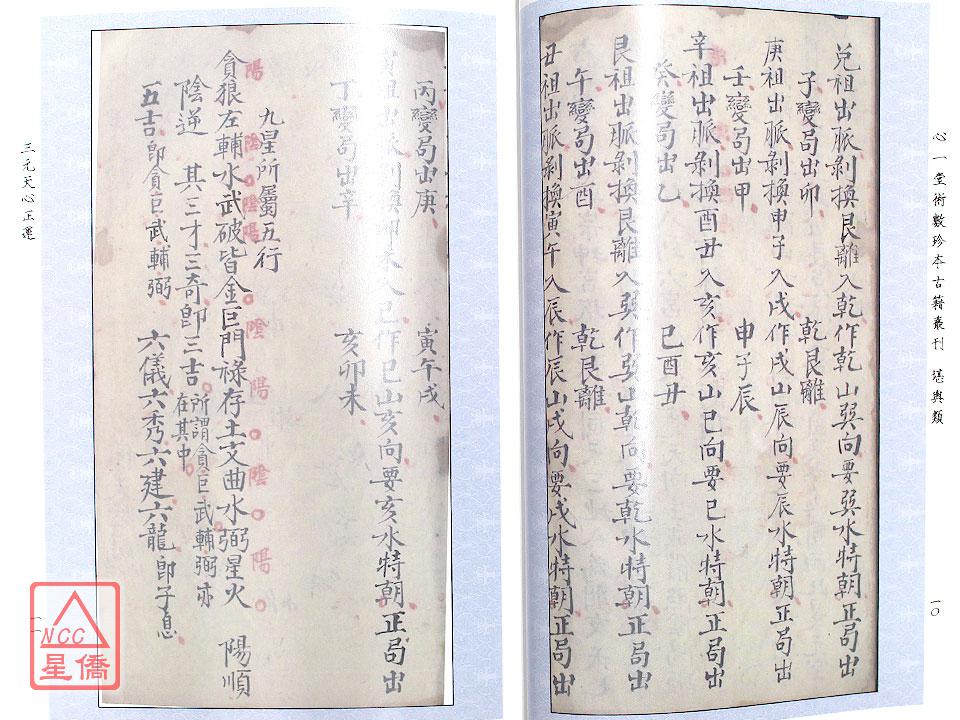 心一堂術數珍本古籍叢刊 堪輿類
一〇
兌祖出脈剝換艮離入乾作乾山巽向要巽水特朝正局出
子變局出卯 乾艮離
庚祖出脈剝換申子入戌作戌山辰向要辰水特朝正局出
壬變局出甲 申子辰
辛祖出脈剝換酉丑入亥作亥山巳向要巳水特朝正局出
癸變局出乙 巳酉丑
艮祖出脈剝換艮離入巽作巽山乾向要乾水特朝正局出
午變局出酉 乾艮離
丑祖出脈剝換寅午入辰作辰山戌向要戌水特朝正局出
丙變局出庚 寅午戌
祖出脈剝換卯未入巳作巳山亥向要亥水特朝正局出
丁變局出辛 亥卯未
九星所屬五行
貪狼左輔水武破皆金巨門祿存土文曲水弼星火 陽順
陽 陰陰陽陽 陰 陽 陰 陽
陰逆 其三才三奇即三吉所謂貪巨武輔弼亦在其中
五吉即貪巨武輔弼 六儀六秀六建六龍即子息
三元天心正運
一一
NCC
星僑